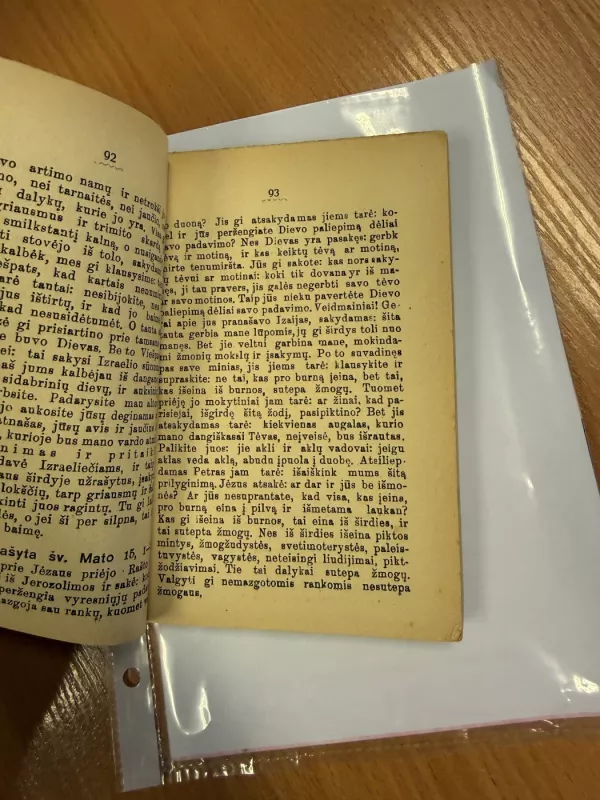 92
vo artimo namų ir netrobė
no, nei tarnaitės, nei jančio,
ų dalykų, kurie jo yra. Visa
griausmus ir trimito skardą
smilkstantį kalną, o nusigan-
ti stovėjo iš tolo, sakydami
kalbėk, mes gi klausysime:
ešpats, kad kartais nenumi-
arė tantai: nesibijokite, nes
jus ištirtų, ir kad jo baimė
kad nesusidėtumėt. O tanta
zė gi prisiartino prie tamsu-
e buvo Dievas. Be to Viešpats
ei: tai sakysi Izraelio sūnums
aš jums kalbėjau iš dangaus
sidabrinių dievų, ir auksinių
rbsite. Padarysite man altorių
jo aukosite jūsų deginamas
atnašas, jūsų avis ir jančius
kurioje bus mano vardo atmin-
nimas ir pritaiky
davė Izraeliečiams, ir tai
aus širdyje užrašytus, įsaky
lokščių, tarp griausmų ir ži
kinti juos ragintų. Tu gi la
lės, o jei ši per silpna, tai
baimę.
ašyta šv. Mato 15, 1—
prie Jėzaus priėjo Rašto
iš Jerozolimos ir sakė: ko
peržengia vyresniųjų pada
azgoja sau rankų, kuomet v
93
o duoną? Jis gi atsakydamas jiems tarė: ko-
el ir jūs peržengiate Dievo paliepimą dėliai
savo padavimo? Nes Dievas yra pasakęs: gerbk
tėvą ir motiną, ir kas keiktų tėvą ar motiną,
mirte tenumiršta. Jūs gi sakote: kas nors saky-
tų tėvui ar motinai: koki tik dovana yr iš ma-
nęs, ji tan pravers, jis galės negerbti savo tėvo
ar savo motinos. Taip jūs niekn pavertėte Dievo
paliepimą dėliai savo padavimo. Veidmainiai! Ge-
rai apie jus pranašavo Izaijas, sakydamas: šita
tauta gerbia mane lūpomis, jų gi širdys toli nuo
manęs. Bet jie veltui garbina mane, mokinda-
mi žmonių mokslų ir įsakymų. Po to suvadinęs
pas save minias, jis jiems tarė: klausykite ir
supraskite: ne tai, kas pro burną įeina, bet tai,
kas išeina iš burnos, sutepa žmogų. Tuomet
priėję jo mokytiniai jam tarė: ar žinai, kad pa-
risiejai, išgirdę šitą žodį, pasipiktino? Bet jis
atsakydamas tarė: kiekvienas augalas, kurio
mano dangiškasai Tėvas, neįveisė, bus išrautas.
Palikite juos: jie akli ir aklų vadovai: jeigu
aklas veda aklą, abudu įpuola į duobę. Atsiliep-
damas Petras jam tarė: išaiškink mums šitą
prilyginimą. Jėzus atsakė: ar dar ir jūs be išmo-
nės? Ar jūs nesuprantate, kad visa, kas įeina,
pro burną eina į pilvą ir išmetama laukan?
Kas gi išeina iš burnos, tai eina iš širdies, ir
tai sutepa žmogų. Nes iš širdies išeina piktos
mintys, žmogžudystės, svetimoterystės, paleis-
tuvystės, vagystės, neteisingi liudijimai, pikt-
žodžiavimai. Tie tai dalykai sutepa žmogų.
Valgyti gi nemazgotomis rankomis nesutepa
žmogaus,